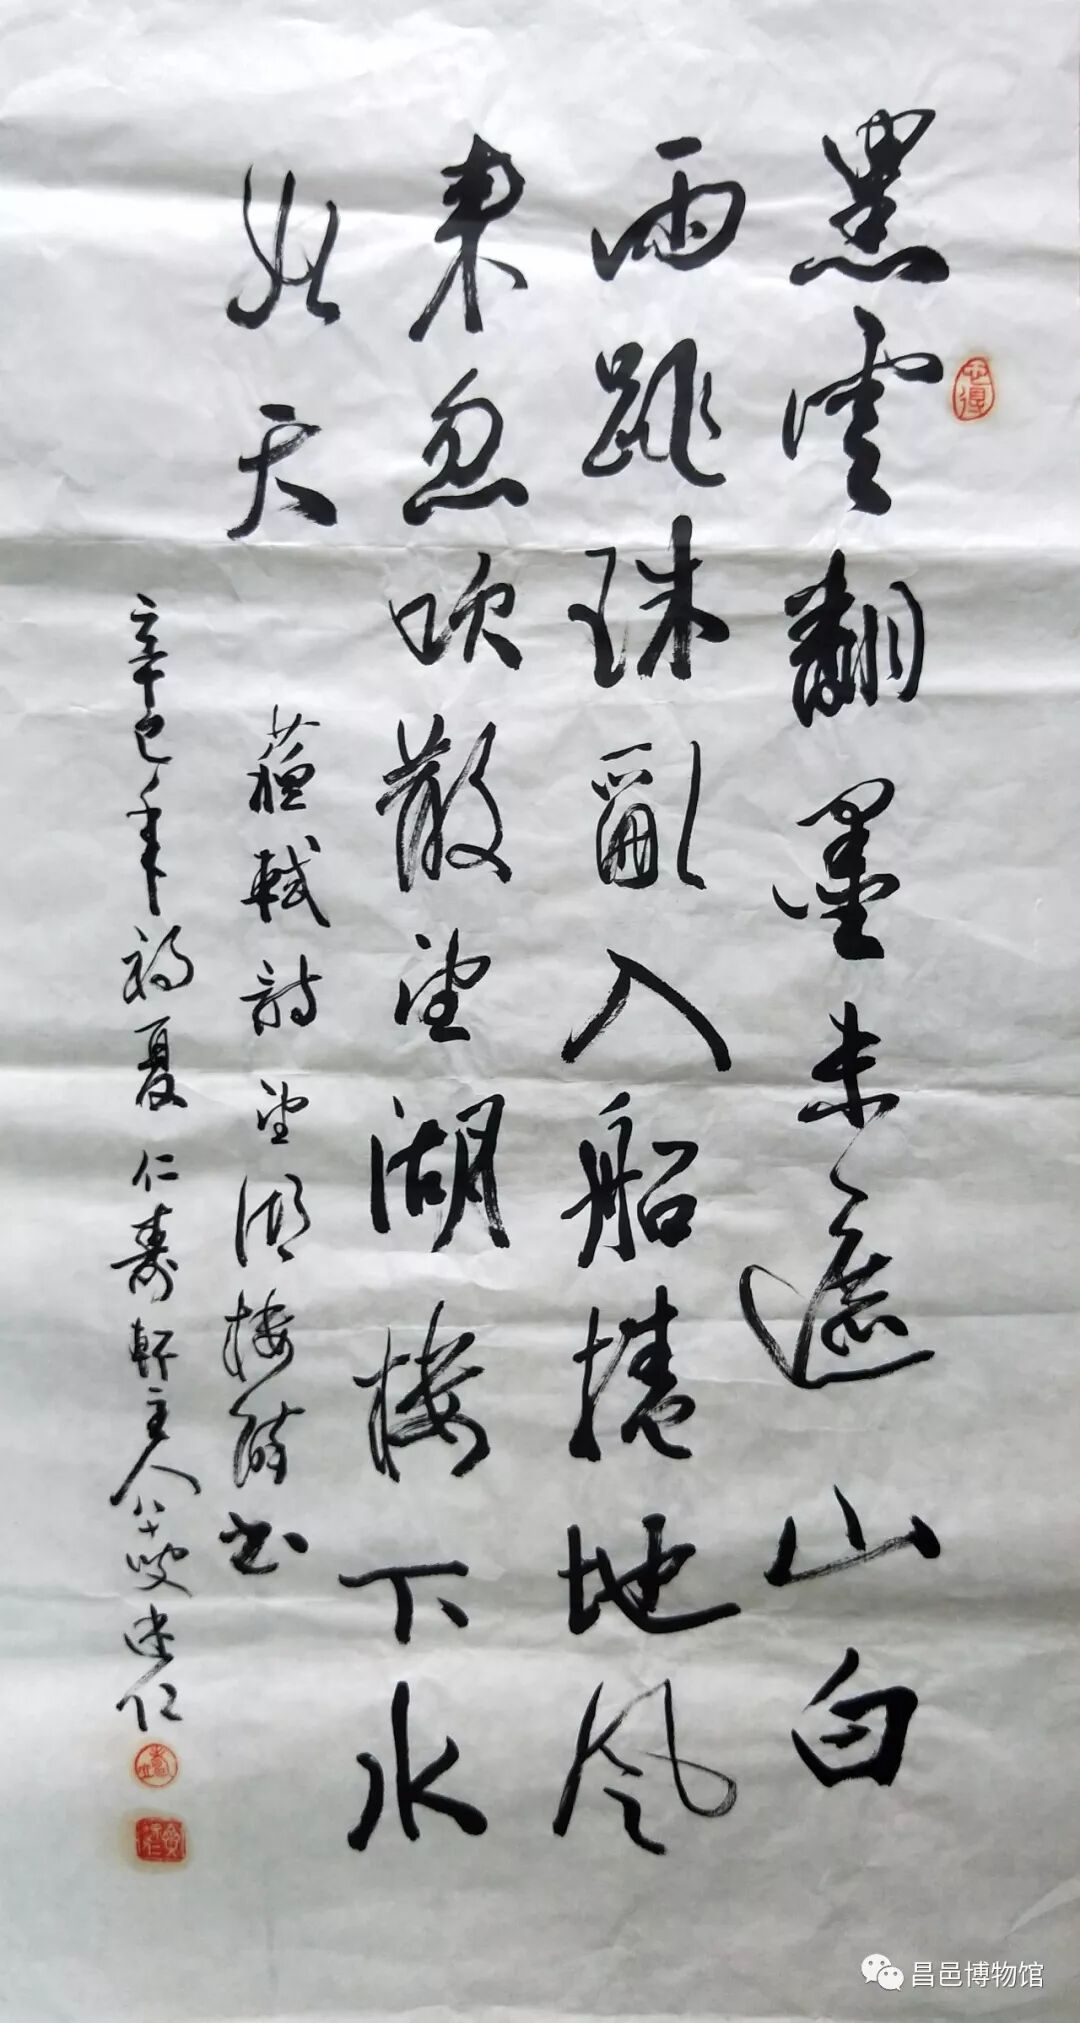 黑雲翻墨未遮山白
雨跳珠亂入船捲地風
来忽吹散望湖楼下水
如天
蘇軾詩望湖楼醉書
辛巳年初夏仁壽軒主人八十叟仁
昌邑博物馆